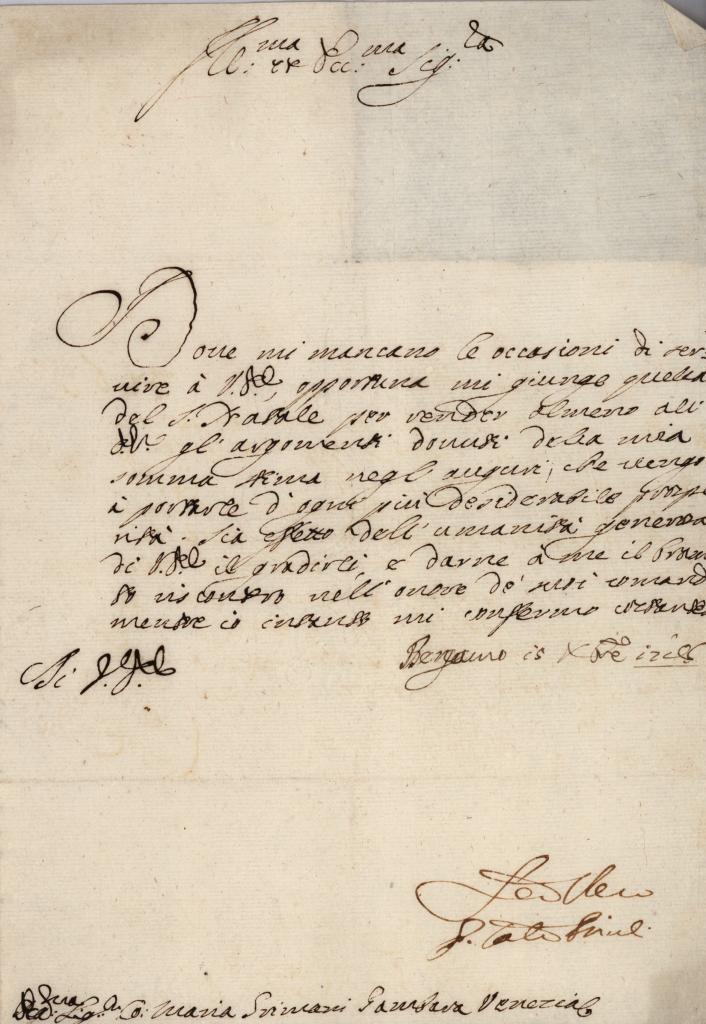 Ill:ma et Ecc:ma Sig:ra
Doue mi mancano le occasioni di ser=
uire à V. E., opportuna mi giunge quella
del S. Natale per render almeno all'
E.V. gl'argomenti douuti della mia
somma stima negl'auguri, che uengo
à portarle d'ogni più desiderabile prospe
rità. Sia effetto dell'umanità generosa
di V. E. il gradirli, e darne à me il bram
to riscontro nell'onore de' suoi comandi
mentre io intanto mi confermo costante
Di V. E.
Bergamo 15 Xbre
Seru
Co: Maria Grimani Gambara Venezia